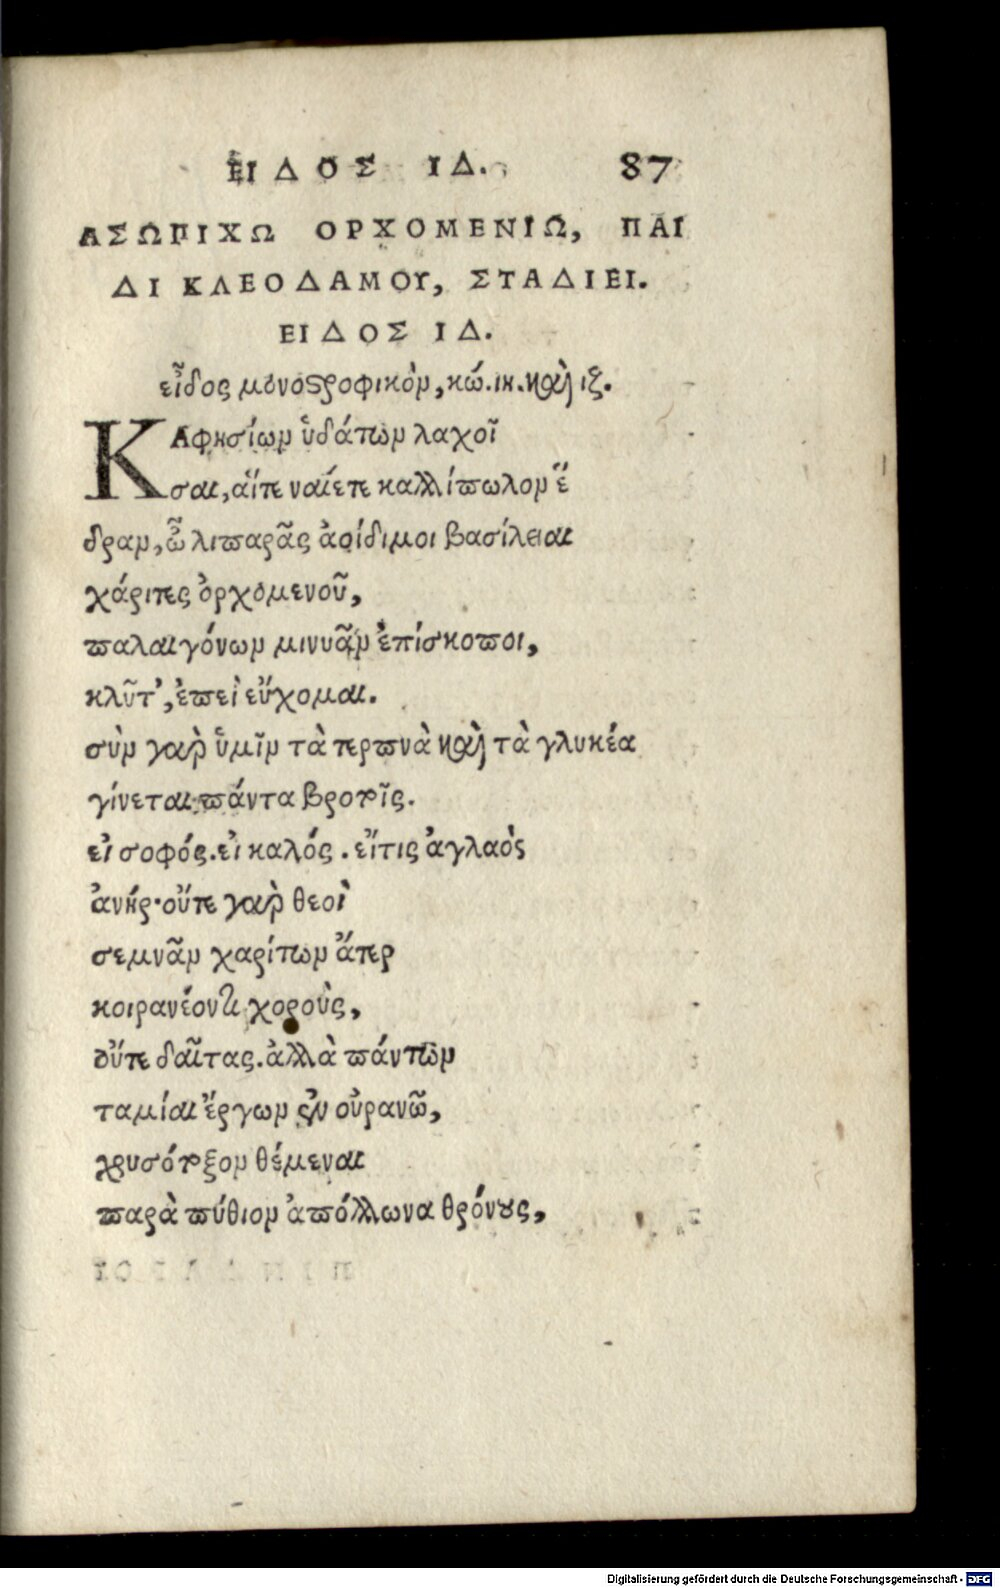 ΕΙΔΟΣ ΙΔ. 87
ΑΣΩΠΙΧΩ ΟΡΧΟΜΕΝΙΩ, ΠΑΙ
ΔΙ ΚΛΕΟΔΑΜΟΥ, ΣΤΑΔΙΕΙ.
ΕΙΔΟΣ ΙΔ.
εἶδος μονοστροφικὸν, κώ. ιη. καὶ ιζ.
ΚΑφησίων ὑδάτων λαχοῖ
σαι, αἵτε ναίετε καλλίπωλον ἕ
δραν, ὦ λιπαρᾶς ἀοίδιμοι βασίλειαι
χάριτες ὀρχομενοῦ,
παλαιγόνων μινυᾶν ἐπίσκοποι,
κλῦτ', ἐπεὶ εὔχομαι.
σὺν γὰρ ὑμῖν τὰ τερπνὰ καὶ τὰ γλυκέα
γίνεται πάντα βροτοῖς.
εἰ σοφός. εἰ καλός. εἴτις ἀγλαὸς
ἀνήρ· οὔτε γὰρ θεοὶ
σεμνᾶν χαρίτων ἄτερ
κοιρανέοντι χοροὺς,
οὔτε δαῖτας. ἀλλὰ πάντων
ταμίαι ἔργων ἐν οὐρανῶ,
χρυσότοξον θέμεναι
παρὰ πύθιον ἀπόλλωνα θρόνους,
Digitalisierung gefördert durch die Deutsche Forschungsgemeinschaft - DFG